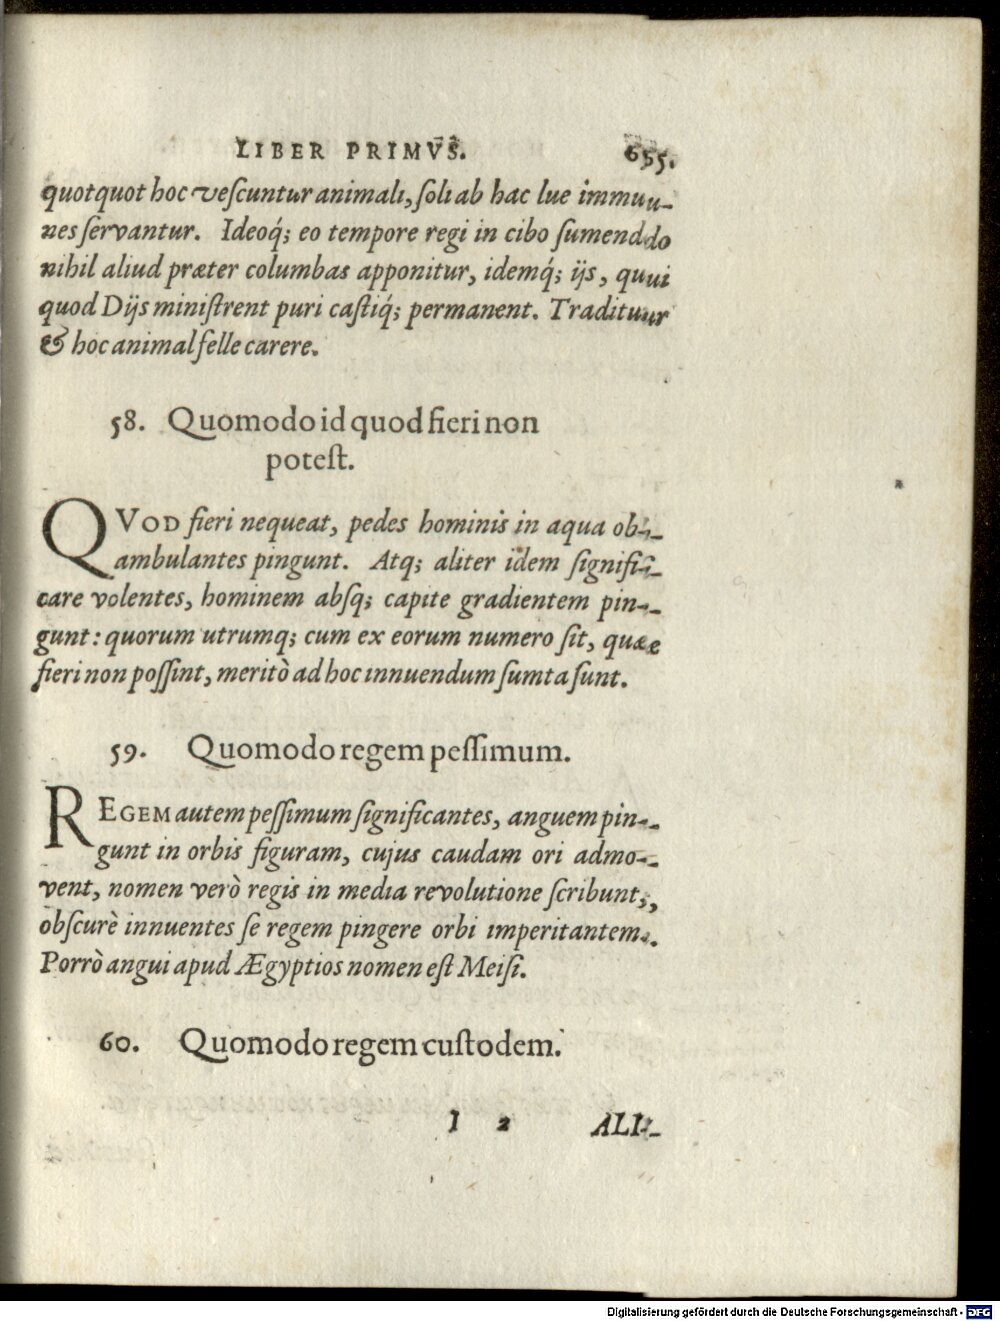 LIBER PRIMVS. 65.
quotquot hoc vescuntur animali, soli ab hac lue immu-
nes servantur. Ideoq́; eo tempore regi in cibo sumendo
nihil aliud præter columbas apponitur, idemq́; ijs, qui
quod Dijs ministrent puri castiq́; permanent. Traditur
& hoc animal felle carere.
58. Quomodo id quod fieri non
potest.
QVOD fieri nequeat, pedes hominis in aqua ob-
ambulantes pingunt. Atq; aliter idem signifi-
care volentes, hominem absq; capite gradientem pin-
gunt: quorum utrumq; cum ex eorum numero sit, quæ
fieri non possint, meritò ad hoc innuendum sumta sunt.
59. Quomodo regem pessimum.
REGEM autem pessimum significantes, anguem pin-
gunt in orbis figuram, cujus caudam ori admo-
vent, nomen verò regis in media revolutione scribunt,
obscurè innuentes se regem pingere orbi imperitantem.
Porrò angui apud Ægyptios nomen est Meisi.
60. Quomodo regem custodem.
I 2 ALI-
Digitalisierung gefördert durch die Deutsche Forschungsgemeinschaft - DFG